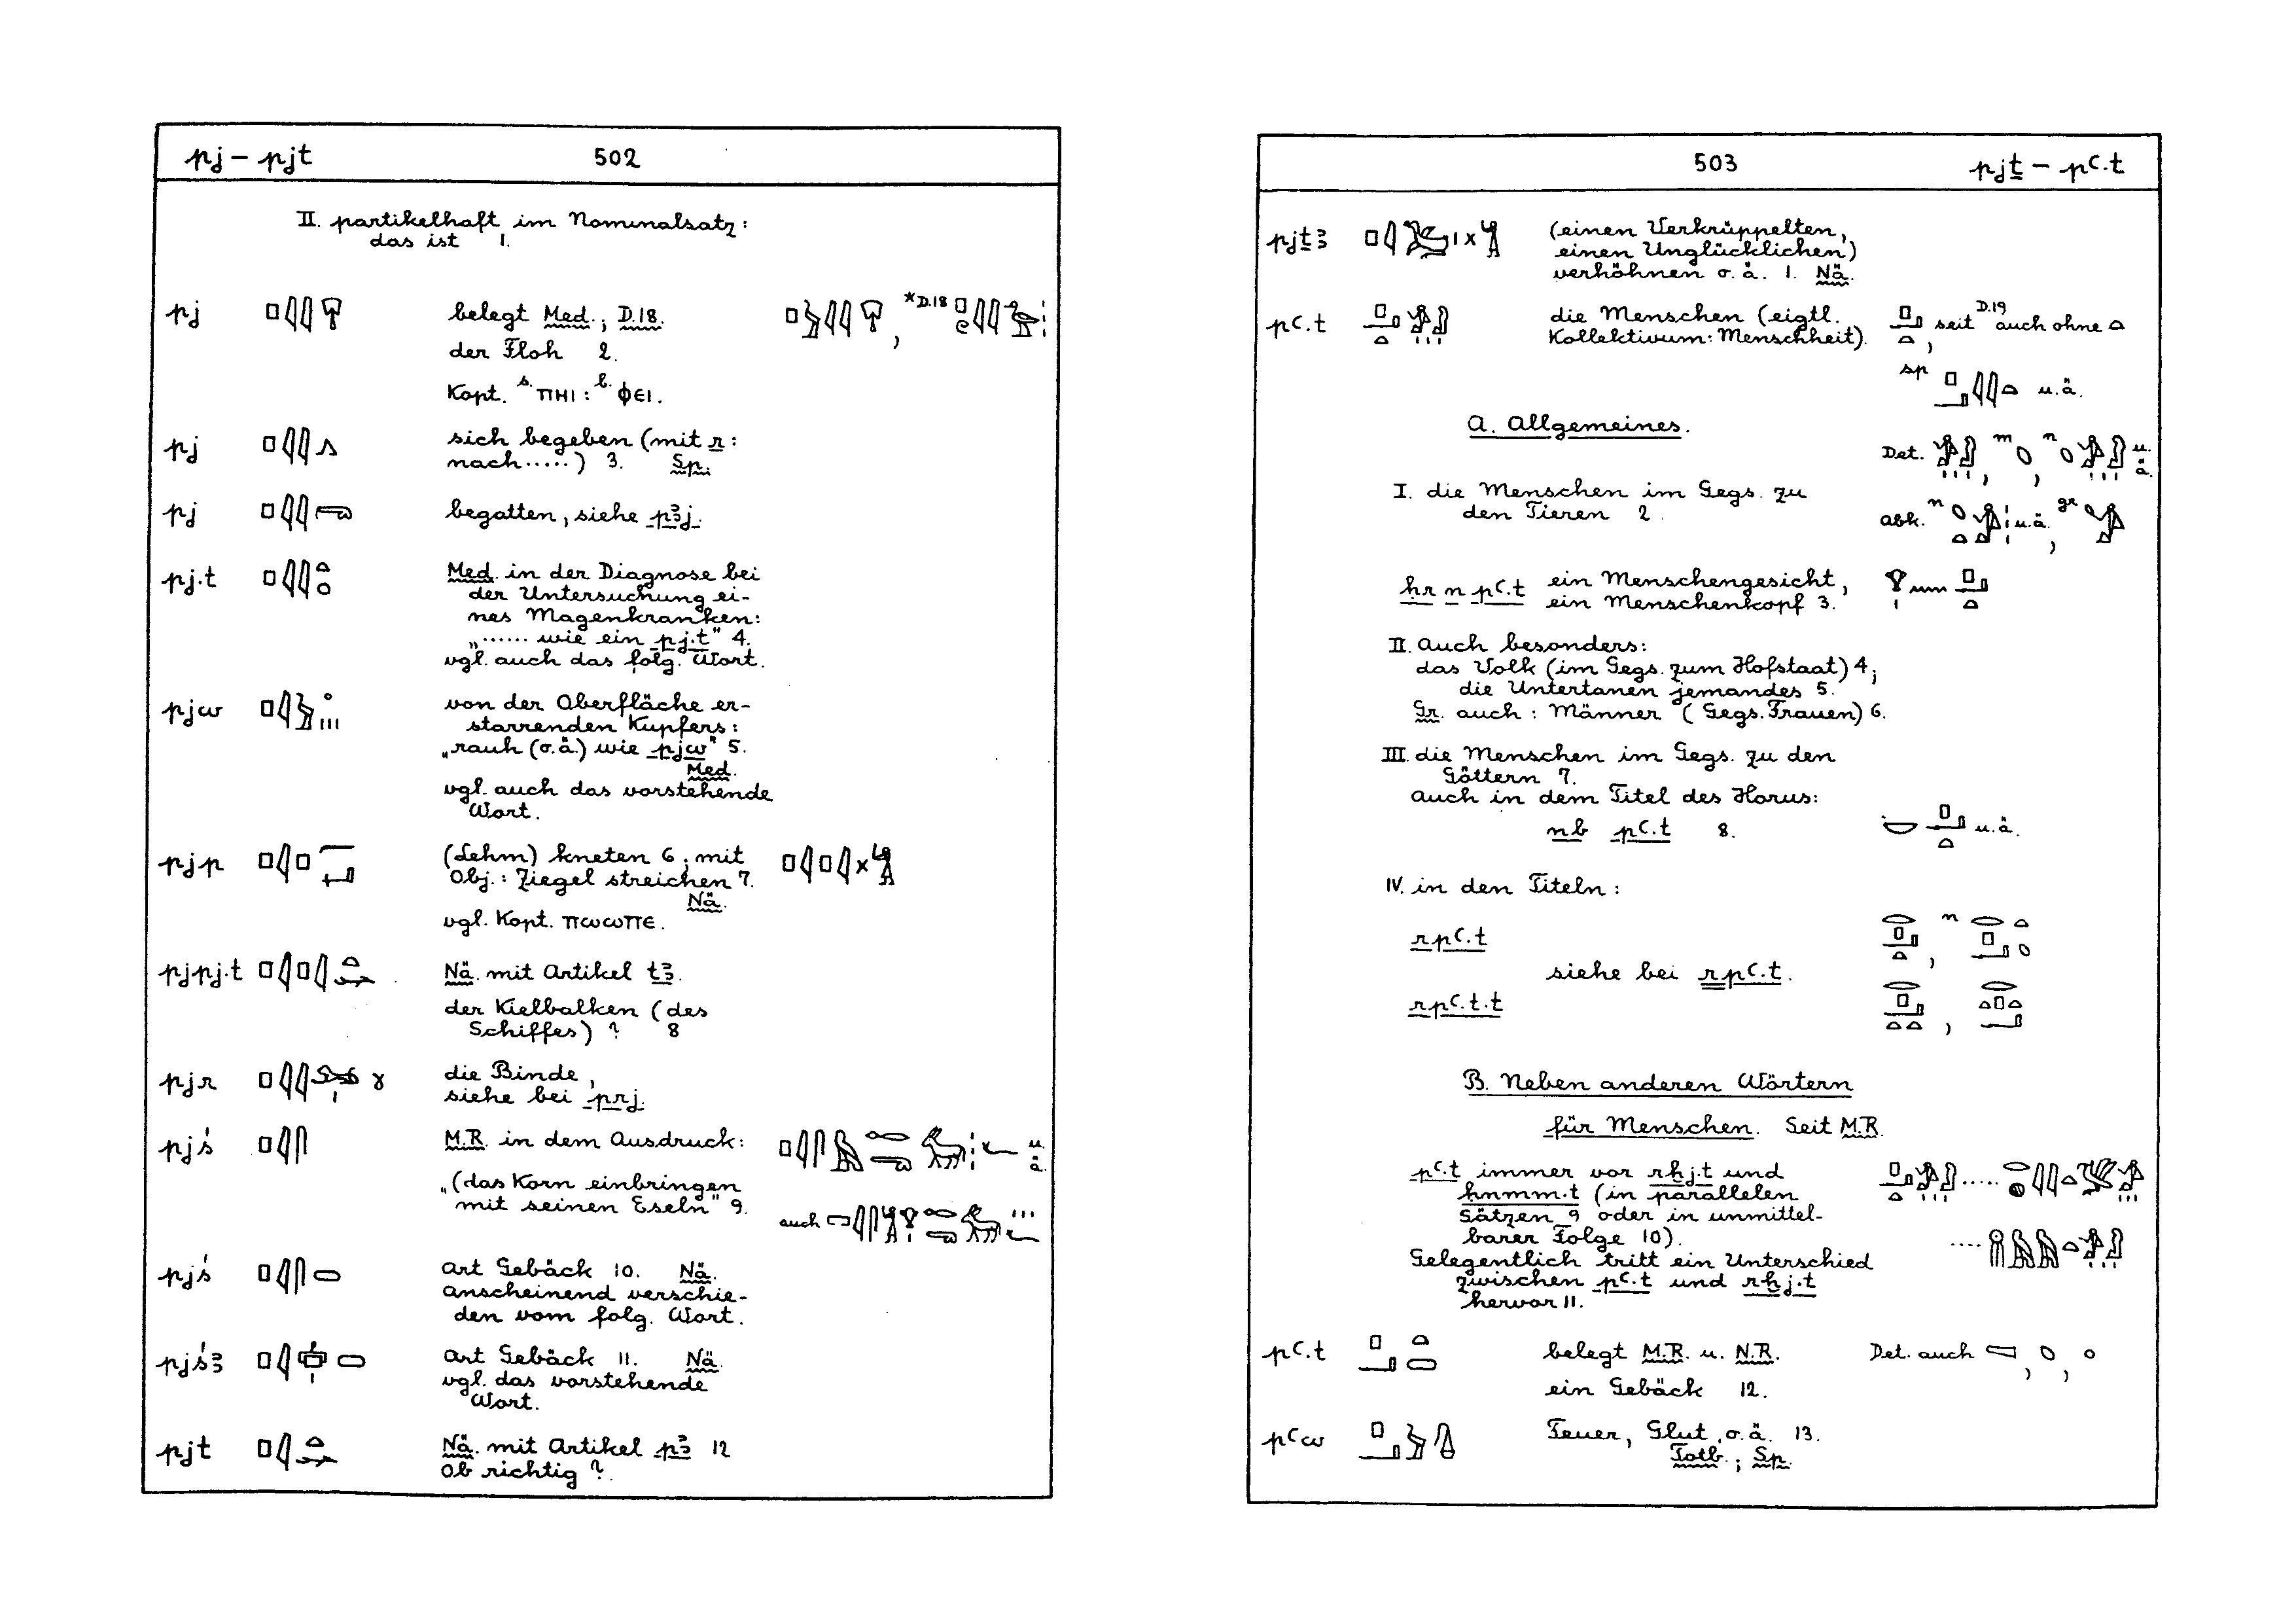 pj – pjt 502
II. partikelhaft im Nominalsatz:
das ist 1.
pj belegt Med.; D.18.
*D.18
der Floh 2.
Kopt. s. ⲡⲏⲓ : b. ϕⲉⲓ.
pj sich begeben (mit r:
nach.....) 3. Sp.
pj begatten, siehe pꜣj.
pj.t Med. in der Diagnose bei
der Untersuchung ei-
nes Magenkranken:
„...... wie ein pj.t" 4.
vgl. auch das folg. Wort.
pjw von der Oberfläche er-
starrenden Kupfers:
„rauh (o.ä.) wie pjw" 5.
Med.
vgl. auch das vorstehende
Wort.
pjp (Lehm) kneten 6; mit
Obj.: Ziegel streichen 7.
Nä.
vgl. Kopt. ⲡⲱⲱⲡⲉ.
pjpj.t Nä. mit Artikel tꜣ.
der Kielbalken (des
Schiffes) ? 8
pjr die Binde,
siehe bei prj.
pjś M.R. in dem Ausdruck: u.
ä.
„(das Korn einbringen
mit seinen Eseln" 9.
auch
pjś Art Gebäck 10. Nä.
anscheinend verschie-
den vom folg. Wort.
pjśꜣ Art Gebäck 11. Nä.
vgl. das vorstehende
Wort.
pjt Nä. mit Artikel pꜣ 12
Ob richtig ?.
503 pjṯ – pꜥ.t
pjṯꜣ (einen Verkrüppelten,
einen Unglücklichen)
verhöhnen o.ä. 1. Nä.
pꜥ.t die Menschen (eigtl.
Kollektivum: Menschheit).
, seit D.19 auch ohne
sp u.ä.
A. Allgemeines.
Det. , m , n u.
ä.
I. die Menschen im Gegs. zu
den Tieren 2.
abk. n u.ä., gr
ḥr n pꜥ.t ein Menschengesicht,
ein Menschenkopf 3.
II. Auch besonders:
das Volk (im Gegs. zum Hofstaat) 4;
die Untertanen jemandes 5.
Gr. auch: Männer (Gegs. Frauen) 6.
III. die Menschen im Gegs. zu den
Göttern 7.
auch in dem Titel des Horus:
nb pꜥ.t 8. u.ä.
IV. in den Titeln:
rpꜥ.t , n
siehe bei rpꜥ.t.
rpꜥ.t.t ,
B. Neben anderen Wörtern
für Menschen. Seit M.R.
pꜥ.t immer vor rḫj.t und
ḥnmm.t (in parallelen
Sätzen 9 oder in unmittel-
barer Folge 10).
Gelegentlich tritt ein Unterschied
zwischen pꜥ.t und rḫj.t
hervor 11.
pꜥ.t belegt M.R. u. N.R. Det. auch , ,
ein Gebäck 12.
pꜥw Feuer, Glut o.ä. 13.
Totb.; Sp.